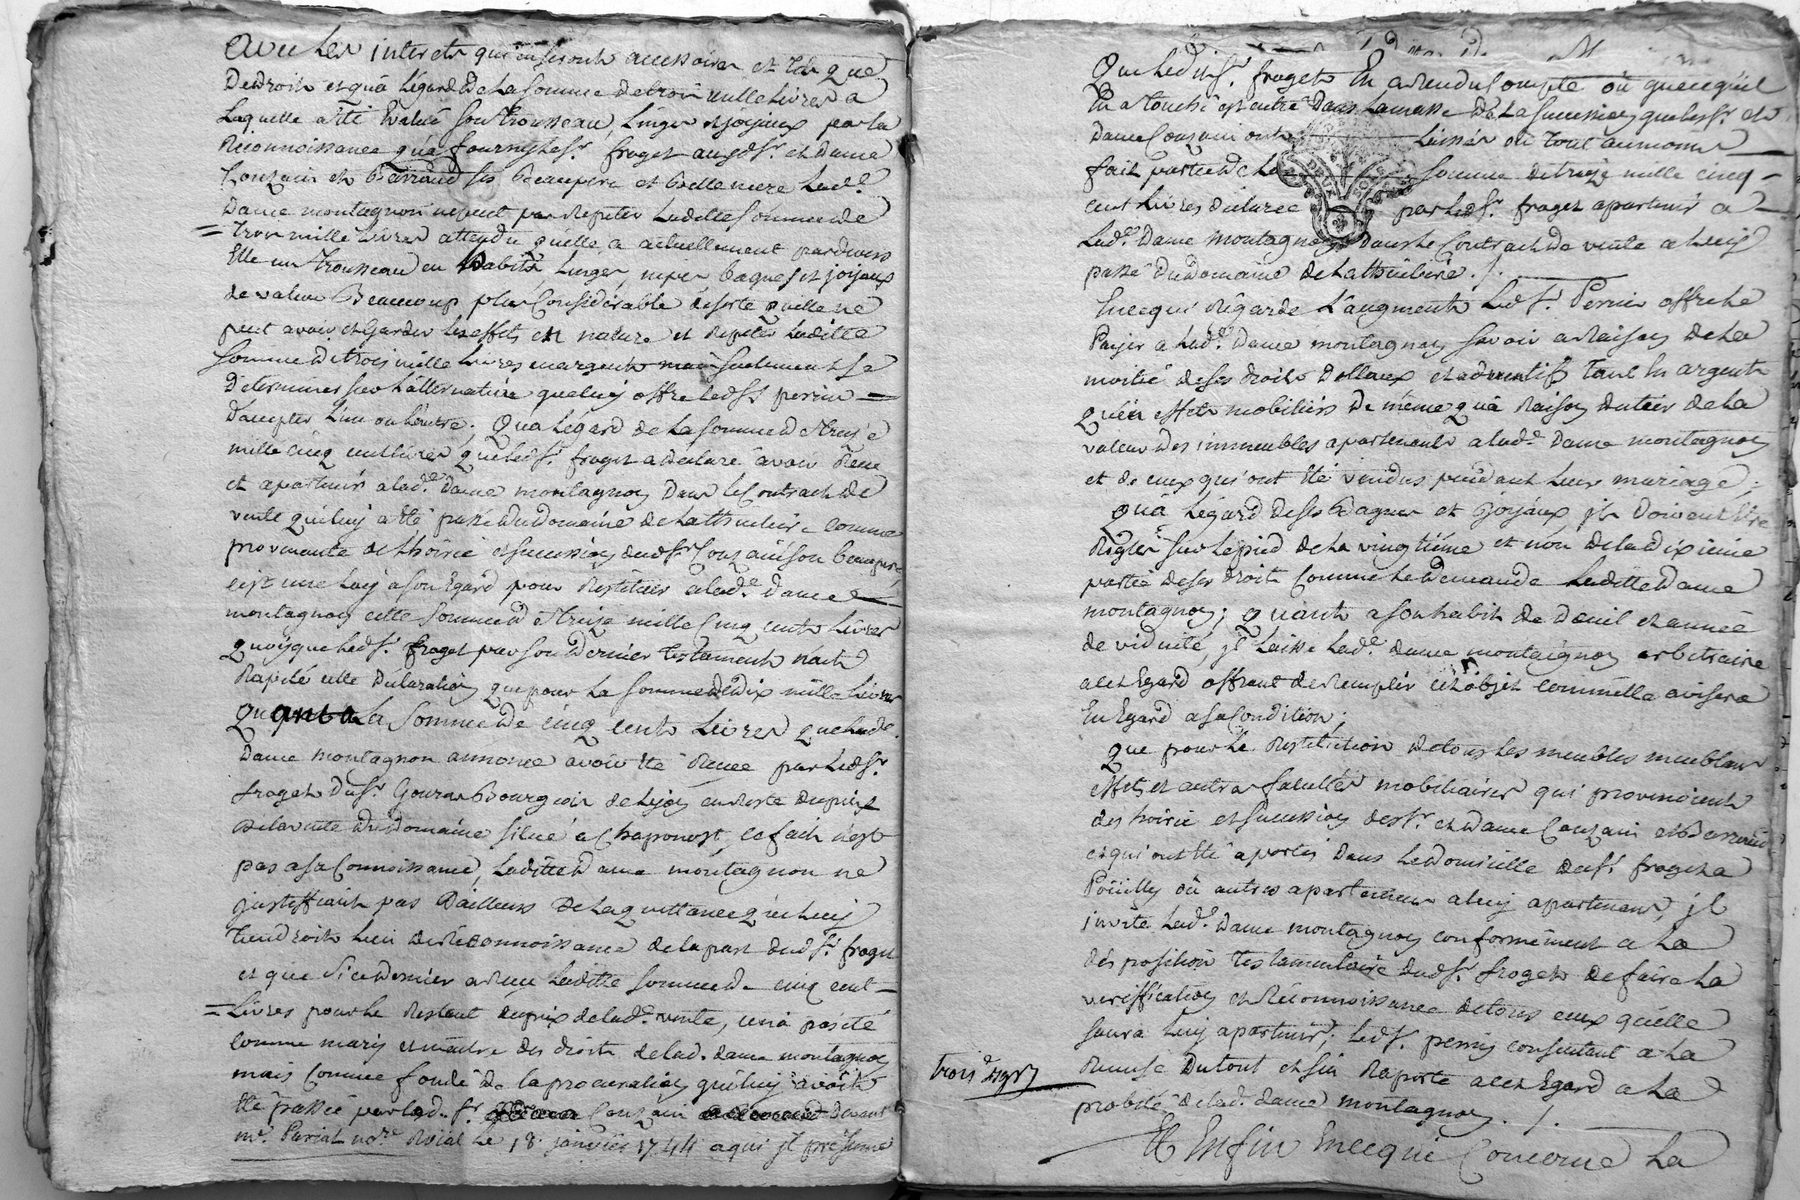 avec les interets qui en seront accessoires et tels que
de droit et qu'a l'egard de la somme de trois mille livres a
laquelle a été evalué son trousseau, linges et joyaux par la
reconnoissance qu'a fourny le sr. froget auxd. sr. et dame
Couzain et Barraud ses beaupere et bellemere lade.
dame montagnon ne peut pas repeter ladite somme de
= trois mille livres attendu qu'elle a actuellement pardevers
elle un trousseau en habits, linges, nipes bagues et joyaux
de valeur beaucoup plus considerable desorte qu'elle ne
peut avoir et garder les effets en nature et repeter ladite
somme de trois mille livres en argent mais seulement se
determiner sur l'alternative que luy offre led. sr. perrin =
d'accepter l'un ou l'autre; Qu'a l'égard de la somme de treize
mille cinq cent livres que led. sr. froget a declaré avoir reçue
et apartenir a lade. dame montagnon dans le contract de
vente qui luy a été passé du domaine de la thuiliere comme
provenante de l'hoirie et succession dud. sr. Couzain son beaupere,
c'est une loy a son egard pour restituer a lade. dame
montagnon cette somme de treize mille cinq cents livres
quoyque led. sr. froget par son dernier testament n'ait
rapelé cette declaration que pour la somme de dix mille livres
quant a la somme de cinq cent livres que lade.
dame montagnon annonce avoir été reçue par led. sr.
froget du sr. Gouras bourgeois de lyon en reste du prix
de la vente du domaine situé a Chaponost, ce fait n'est
pas a sa connoissance, ladite dame montagnon ne
justiffiant pas d'ailleurs de la quittance qui luy
tiendroit lieu de reconnoissance de la part dud. sr. froget
et que si ce dernier a reçu ladite somme de cinq cent
= livres pour le restant du prix de lade. vente, ce n'a pas été
comme mary et maitre des droits de lad. dame montagnon
mais comme fondé de la procuration qui luy avoit
été passée par led. sr. Couzain devant
me. Pariat nore. roial le 18 janvier 1744 a qui il présume
que led. sr. froget en a rendu compte ou que ce qu'il
en a touché est entré dans la masse de la succession que les sr. et
dame Couzain ont laissée ou tout au moins
fait partie de la somme de treize mille cinq
cent livres declarée par led. sr. froget apartenir a
lade. dame montagnon dans le contract de vente a luy
passé du domaine de la thuiliere ./.
En ce qui regarde l'augment led. sr. Perrin offre le
payer a lade. dame montagnon savoir a raison de la
moitié de ses droits dottaux et adventifs tant en argent
qu'en effets mobiliers de même qu'a raison du tiers de la
valeur des immeubles apartenants a lade. dame montagnon
et de ceux qui ont été vendus pendant leur mariage;
Qu'a l'égard de ses bagues et joyaux, ils doivent être
reglés sur le pied de la vingtième et non de la dixieme
partie de ses droits comme le demande ladite dame
montagnon; quant a son habit de deuil et année
de viduité, il laisse lade. dame montagnon arbitraire
a cet egard offrant de remplir cet objet comm'elle avisera
en egard a sa condition;
que pour la restitution de tous les meubles meublans
effets et autres facultés mobiliaires qui provenoient
des hoirie et succession des sr. et dame Couzain et Barraud
et qui ont été aportés dans le domicille du sr. froget a
Poüilly ou autres apartemens a luy apartenans, il
invite lade. dame montagnon conformement a la
disposition testamentaire dud. sr. froget de faire la
veriffication et reconnoissance de tous ceux qu'elle
saura luy apartenir; led. sr. perrin consentant a la
remise du tout et s'en raporte a cet egard a la
probité de lad. dame montagnon ./.
Et Enfin En ce qui Concerne la